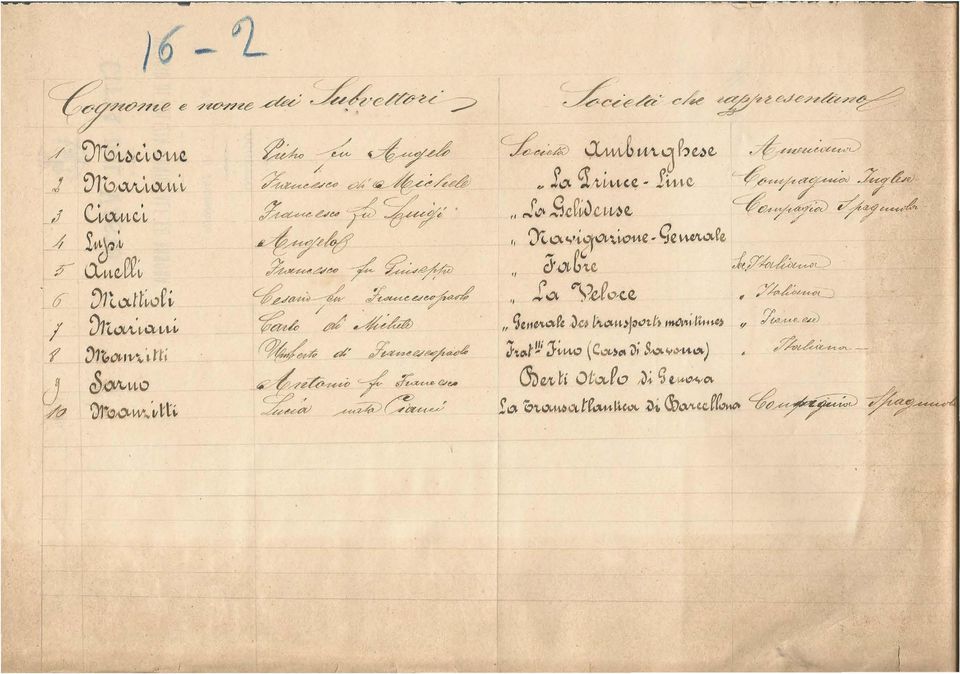 16-2
Cognome e nome dei Subvettori Società che rappresentano
1 Miscione Pietro fu Angelo Società Amburghese Americana
2 Mariani Francesco di Michele " La Prince-Line Compagnia Inglese
3 Cianci Francesco fu Luigi " La Gelidense Compagia Spagnuola
4 Lupi Angelo " Navigazione-Generale
5 Anelli Francesco fu Giuseppe " Fabre Italiana
6 Mattioli Cesario fu Francescopaolo " La Veloce " Italiana
7 Mariani Carlo di Michele " Generale des transports maritimes " Francese
8 Manzitti Umberto di Francescopaolo Frat.lli Fino (Casa di Savona) " Italiana
9 Sarno Antonio fu Francesco Berti Otalo di Genova
10 Manzitti Lucia in Cianci La Transatlantica di Barcellona Compagnia Spagnuola